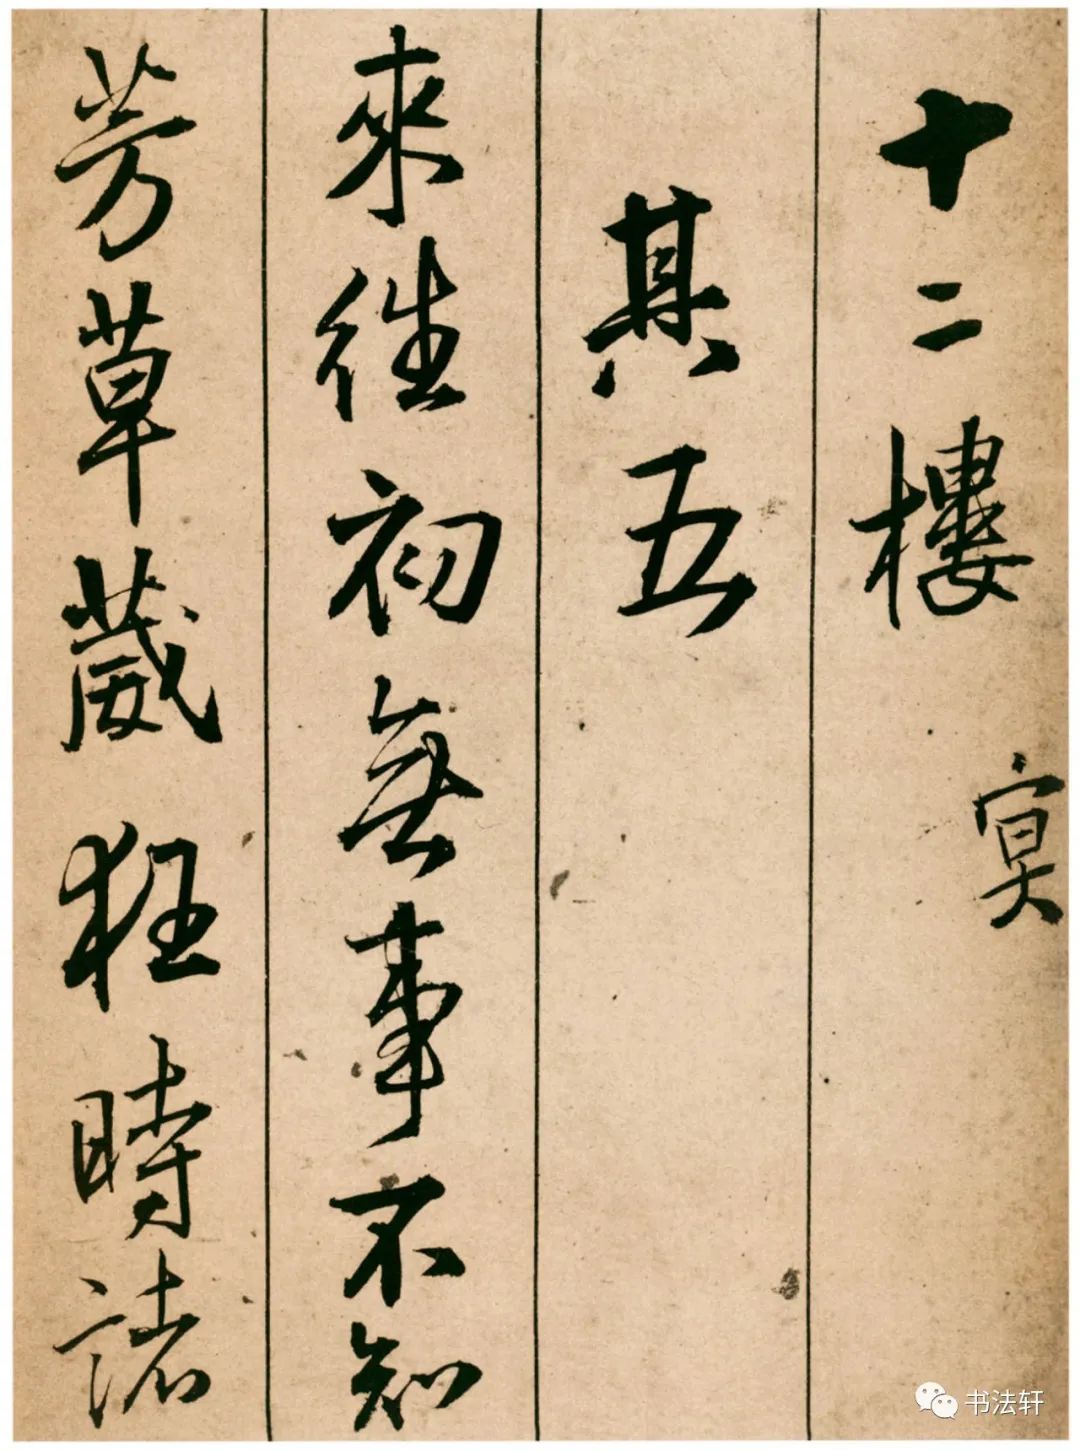 十二樓
冥
其五
來往初無事不知
芳草葳狂時諸
书法轩